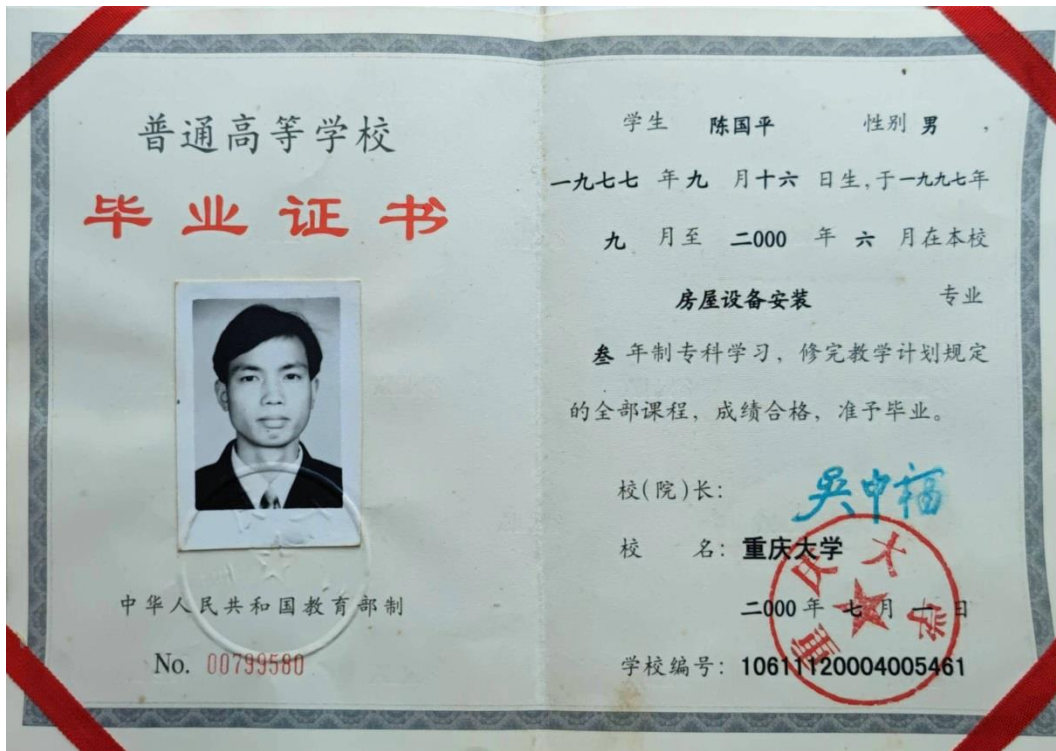 普通高等学校
毕业证书
中华人民共和国教育部制
No. 00799580
学生 陈国平 性别 男 ，
一九七七 年 九 月 十六 日生，于 一九九七年
九 月至 二000 年 六 月在本校
房屋设备安装 专业
叁 年制专科学习，修完教学计划规定
的全部课程，成绩合格，准予毕业。
校(院)长： 吴中福
校 名：重庆大学
二000 年 七 月 一 日
学校编号：10611120004005461
重庆大学